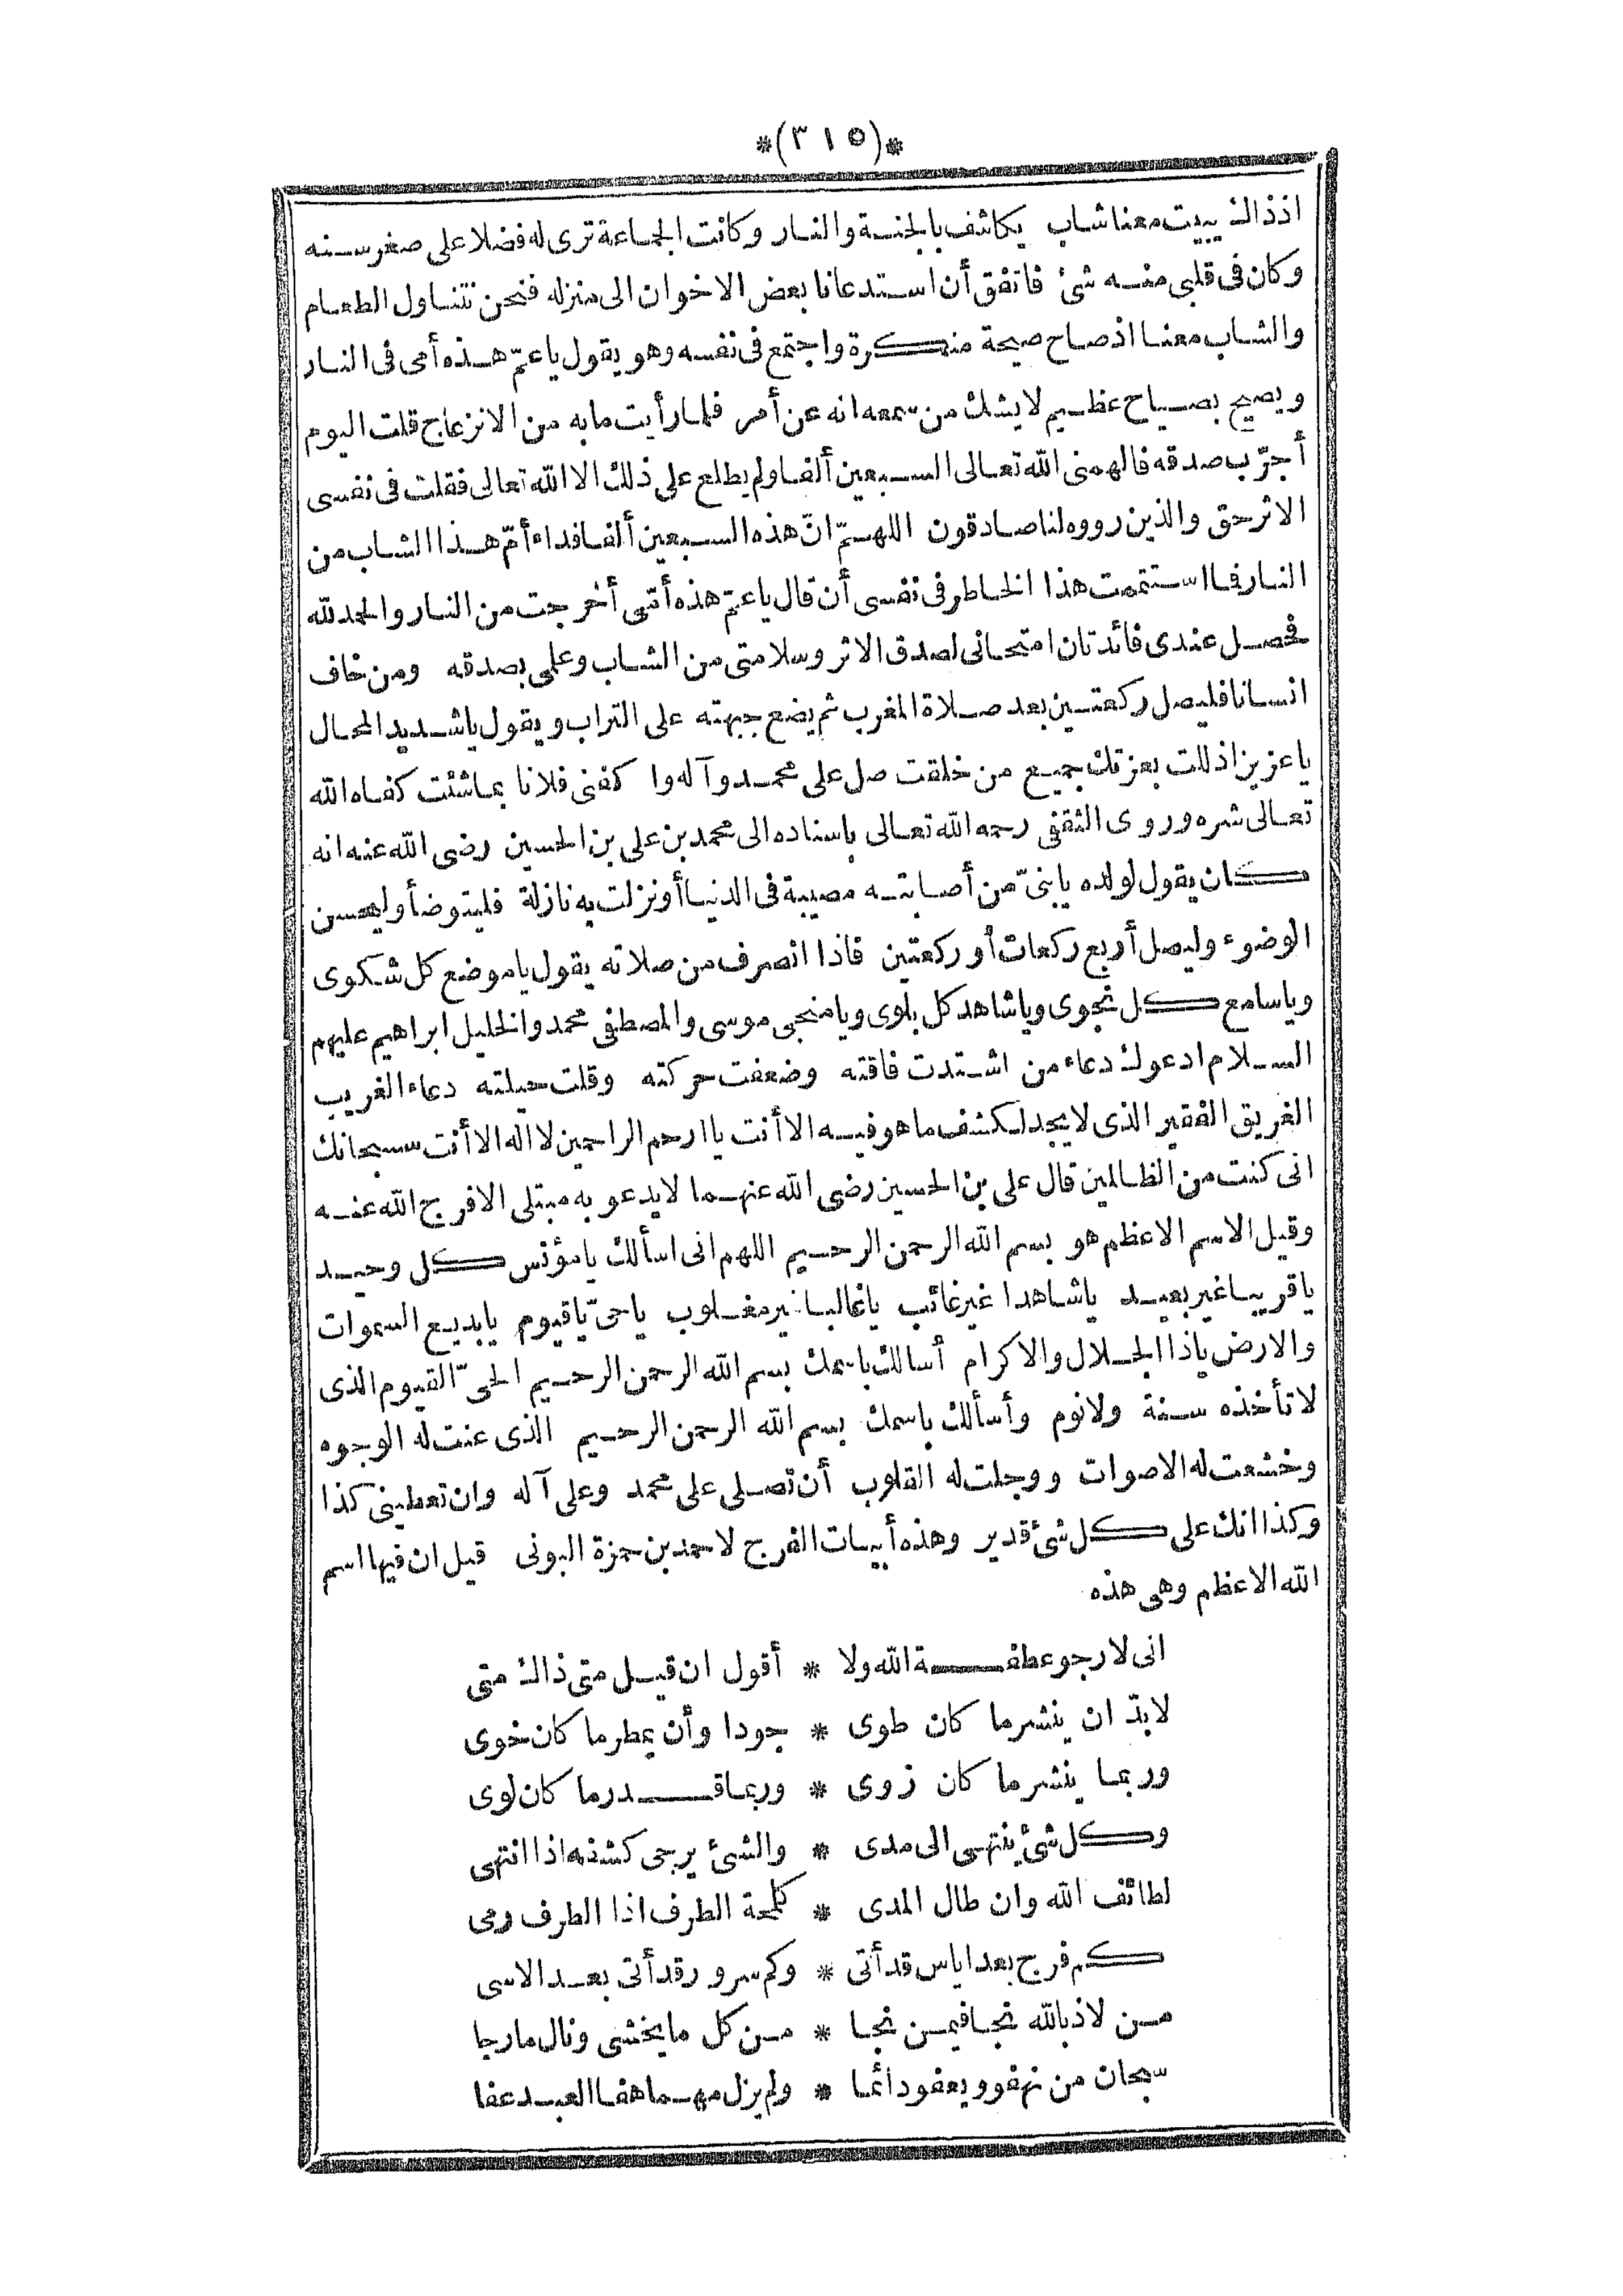 *(٣١٥)*
اذذاك يبيت معنا شاب يكاشف بالجنة والنار وكانت الجماعة ترى له فضلا على صغر سنه
وكان فى قلبى منه شئ فاتفق أن استدعانا بعض الاخوان الى منزله فنحن نتناول الطعام
والشاب معنا اذ صاح صيحة منكرة واجتمع فى نفسه وهو يقول ياعمّ هذه أمى فى النار
ويصيح بصياح عظيم لايشك من سمعه انه عن أمر فلما رأيت مابه من الانزعاج قلت اليوم
أجرّب صدقه فالهمنى الله تعالى السبعين ألفا ولم يطلع على ذلك الا الله تعالى فقلت فى نفسى
الاثر حق والذين رووه لنا صادقون اللهمّ انّ هذه السبعين ألفا فداء أمّ هذا الشاب من
النار فما استتممت هذا الخاطر فى نفسى أن قال ياعمّ هذه أمّى أخرجت من النار والحمد لله
فحصل عندى فائدتان امتحانى لصدق الاثر وسلامتى من الشاب وعلمى بصدقه ومن خاف
انسانا فليصل ركعتين بعد صلاة المغرب ثم يضع جبهته على التراب ويقول ياشديد المحال
ياعزيز اذللت بعزتك جميع من خلقت صل على محمد وآله وا كفنى فلانا بماشئت كفاه الله
تعالى شره وروى الثقفى رحمه الله تعالى باسناده الى محمد بن على بن الحسين رضى الله عنه انه
كان يقول لولده يابنىّ من أصابته مصيبة فى الدنيا أو نزلت به نازلة فليتوضأ وليحسن
الوضوء وليصل أربع ركعات أو ركعتين فاذا انصرف من صلاته يقول ياموضع كل شكوى
وياسامع كل نجوى وياشاهد كل بلوى ويامنجى موسى والمصطفى محمد والخليل ابراهيم عليهم
السلام ادعوك دعاء من اشتدت فاقته وضعفت حركته وقلت حيلته دعاء الغريب
الغريق الفقير الذى لايجد لكشف ماهو فيه الا أنت ياارحم الراحمين لااله الا أنت سبحانك
انى كنت من الظالمين قال على بن الحسين رضى الله عنهما لايدعو به مبتلى الا فرج الله عنه
وقيل الاسم الاعظم هو بسم الله الرحمن الرحيم اللهم انى اسألك يامؤنس كل وحيد
ياقريبا غير بعيد ياشاهدا غير غائب ياغالبا غير مغلوب ياحىّ ياقيوم يابديع السموات
والارض ياذا الجلال والاكرام أسالك باسمك بسم الله الرحمن الرحيم الحىّ القيوم الذى
لا تأخذه سنة ولانوم وأسألك باسمك بسم الله الرحمن الرحيم الذى عنت له الوجوه
وخشعت له الاصوات ووجلت له القلوب أن تصلى على محمد وعلى آله وان تعطينى كذا
وكذا انك على كل شئ قدير وهذه أبيات الفرج لاحمد بن حمزة البونى قيل ان فيها اسم
الله الاعظم وهى هذه
انى لارجو عطفة الله ولا * أقول ان قيل متى ذاك متى
لابدّ ان ينشر ما كان طوى * جودا وأن يمطر ما كان خوى
وربما ينشر ما كان زوى * وربما قدر ما كان لوى
وكل شئ ينتهى الى مدى * والشئ يرجى كشفه اذا انتهى
لطائف الله وان طال المدى * كلمحة الطرف اذا الطرف رمى
كم فرج بعد اياس قد أتى * وكم سرور قد أتى بعد الاسى
من لاذ بالله نجا فيمن نجا * من كل مايخشى ونال مارجا
سبحان من نهفو ويعفو دائما * ولم يزل مهما هفا العبد عفا